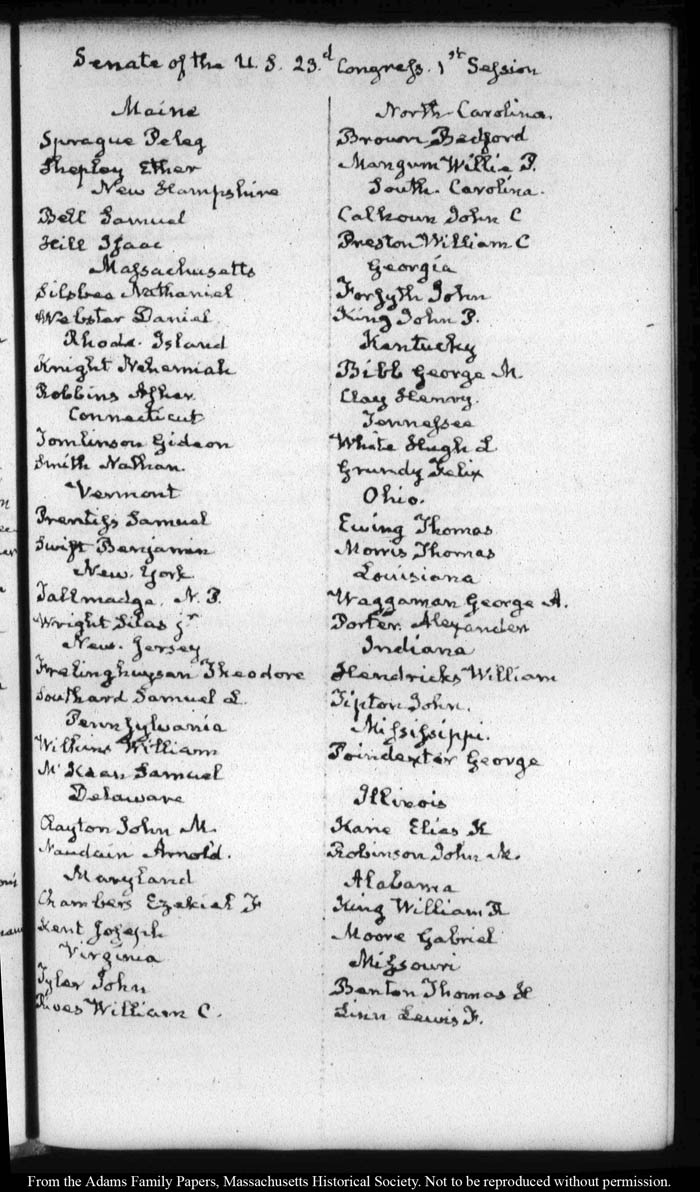 Senate of the U. S. 23.d Congress. 1st Session
Maine
Sprague Peleg
Shepley Ether
New Hampshire
Bell Samuel
Hill Isaac
Massachusetts
Silsbee Nathaniel
Webster Daniel
Rhode. Island
Knight Nehemiah
Robbins Asher.
Connecticut
Tomlinson Gideon
Smith Nathan.
Vermont
Prentiss Samuel
Swift Benjamin
New. York
Tallmadge. N. P.
Wright Silas jr
New. Jersey
Frelinghuysen Theodore
Southard Samuel L.
Pennsylvania
Wilkins William
McKean Samuel
Delaware
Clayton John M.
Naudain Arnold.
Maryland
Chambers Ezekiel F
Kent Joseph
Virginia
Tyler John
Rives William C.
North Carolina.
Brown Bedford
Mangum Willie P.
South. Carolina.
Calhoun John C
Preston William C
Georgia
Forsyth John
King John P.
Kentucky
Bibb George M.
Clay Henry.
Tennessee
White Hugh L
Grundy Felix
Ohio.
Ewing Thomas
Morris Thomas
Louisiana
Waggaman George A.
Porter. Alexander
Indiana
Hendricks William
Tipton John.
Mississippi.
Poindexter George
Illinois
Kane Elias K
Robinson John M.
Alabama
King William R
Moore Gabriel
Missouri
Benton Thomas H
Linn Lewis F.
From the Adams Family Papers, Massachusetts Historical Society. Not to be reproduced without permission.